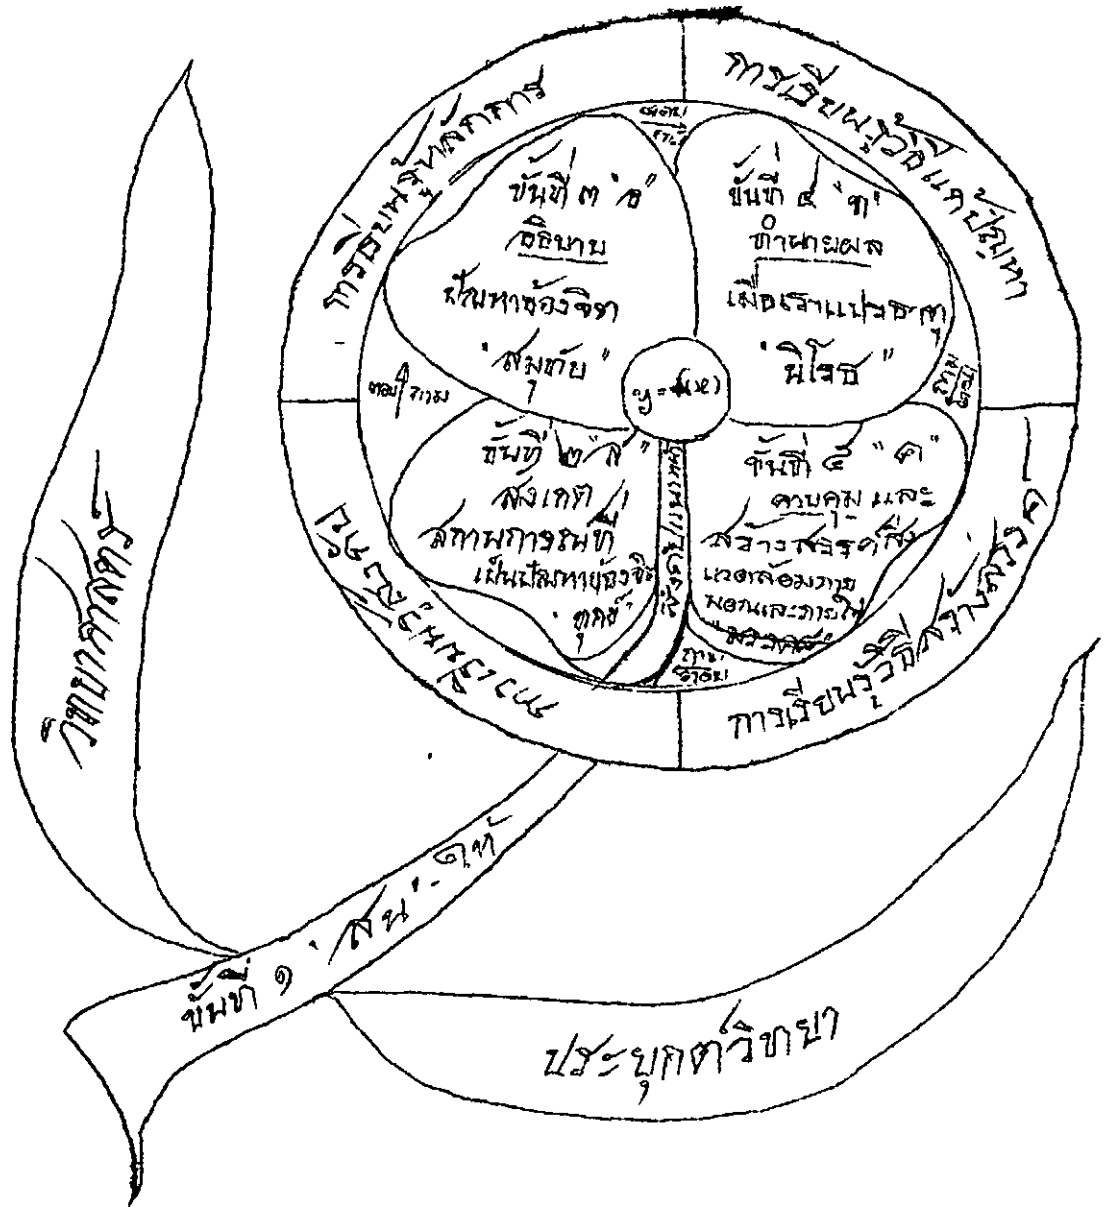 การเรียนรู้หลักการ
การเรียนรู้วิธีแก้ปัญหา
ตอบ
ถาม
ขั้นที่ ๓ "อ"
อธิบาย
ปัญหาของจิต
"สมุทัย"
ขั้นที่ ๔ "ท"
ทำนายผล
เมื่อเราแปร
"นิโรธ"
y = f(x)
ตอบ
ถาม
ถาม
ตอบ
ขั้นที่ ๒ "ส"
สังเกต
สภาพการณ์ที่
เป็นปัญหาของจิต
"ทุกข์"
ขั้นที่ ๕ "ค"
ควบคุม และ
สร้างสรรค์สิ่ง
แวดล้อมภาย
นอกและภายใน
ถาม
ตอบ
การเรียนรู้วิธีสร้างสรรค์
วิทยาศาสตร์
ขั้นที่ ๑ "สน" - ใจ
ประยุกต์วิทยา